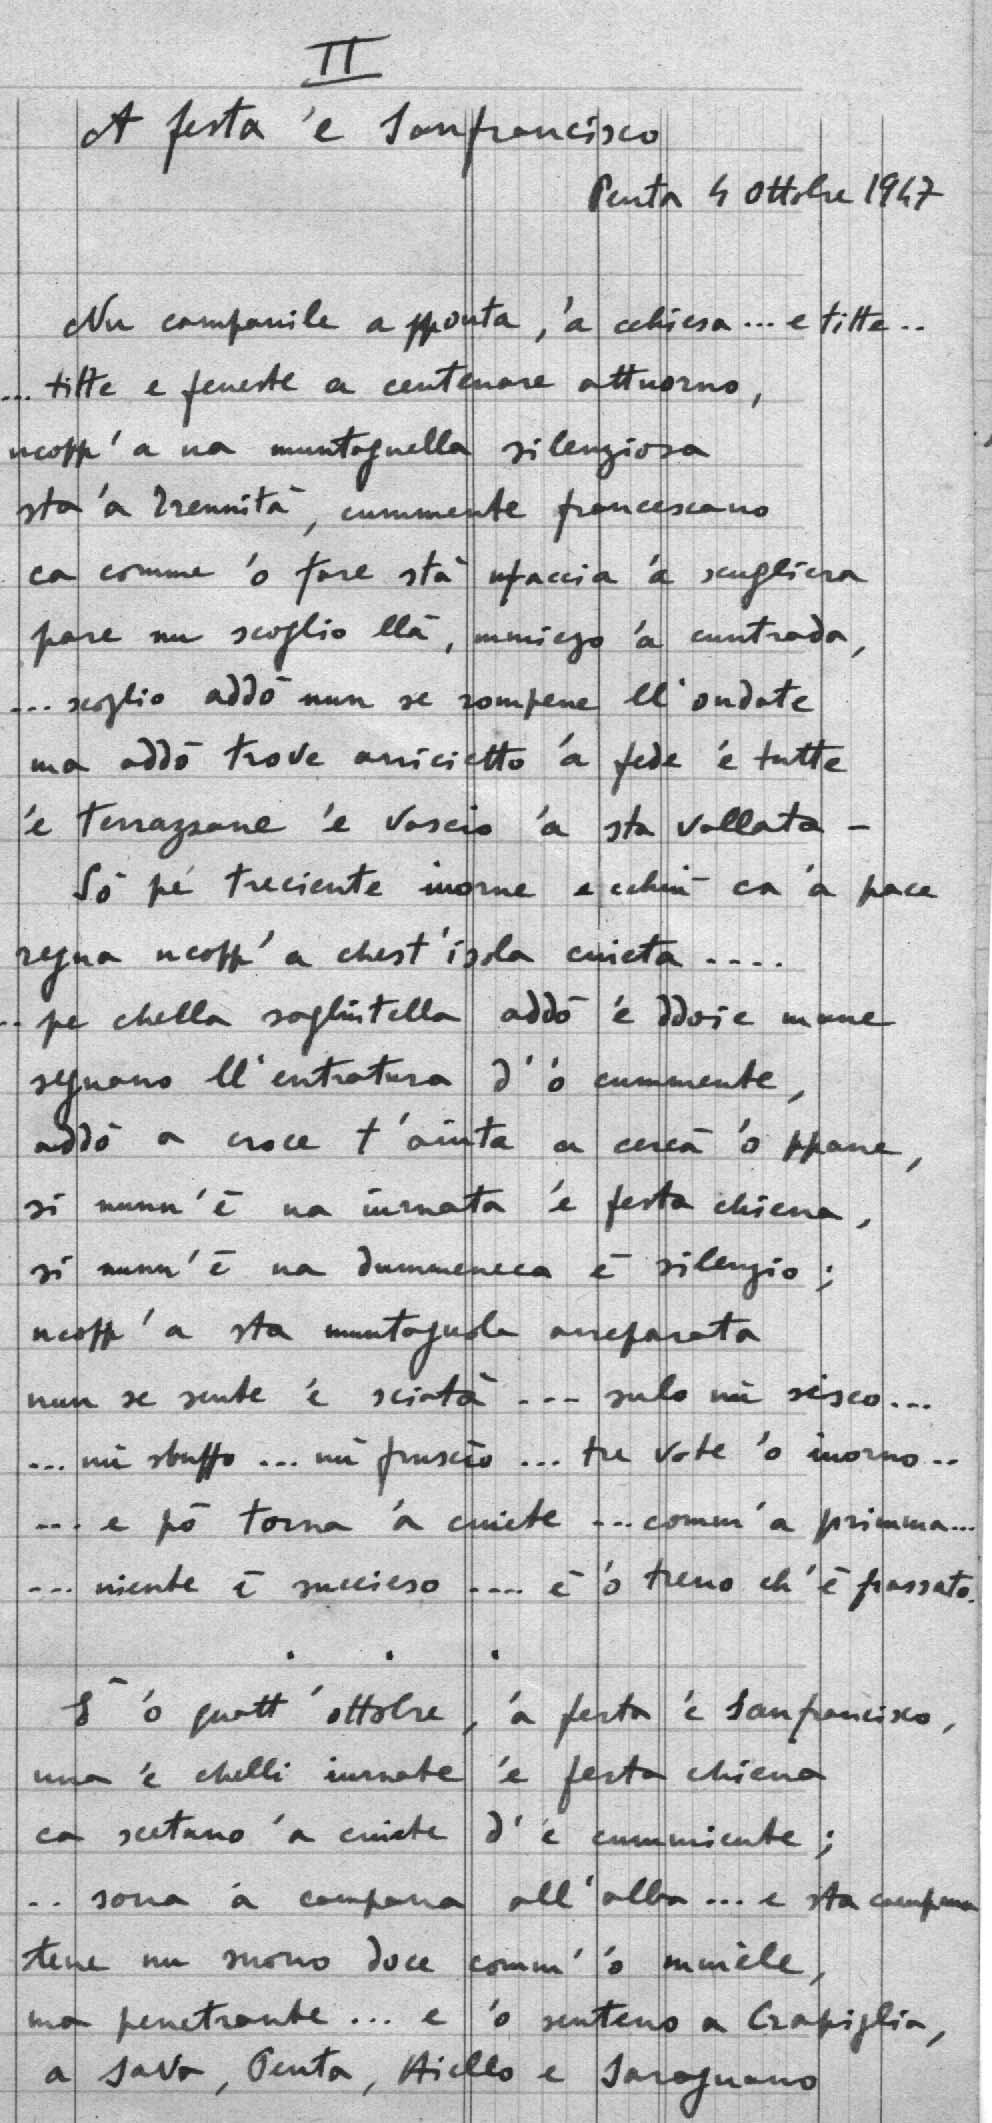 II
A festa 'e Sanfrancisco
Penta 4 Ottobre 1947
Nu campanile a pponta, 'a cchiesa ... e titte ..
... titte e feneste a centenare attuorno,
ncopp' a na muntagnella silenziosa
sta 'a Trennità, cummente francescano
ca comme 'o fare stà nfaccia 'a scugliera
pare nu scoglio llà, mmiezo 'a cuntrada,
... scoglio addò nun se rompene ll'ondate
ma addò trove arricietto 'a fede 'e tutte
'e terrazzane 'e vascio 'a sta vallata -
Sò pé treciente iuorne e cchiù ca 'a pace
regna ncopp' a chest'isola cuieta ....
.. pe chella sagliutella addò 'e ddoie mmane
segnano ll'entratura d' 'o cummente,
addò a croce t'aiuta a cercà 'o ppane,
si nunn' è na iurnata 'e festa chiena,
si nunn' è na dummeneca è silenzio;
ncopp' a sta muntagnola arreparata
nun se sente 'e sciatà --- sulo nu sisco...
... nu sbuffo ... nu fruscio ... tre vote 'o iuorno ..
... e pò torna 'a cuiete ... comm' a primma...
--- niente è succieso .... è 'o treno ch' è passato.
. . .
È 'o quatt' ottobre, 'a festa 'e Sanfrancisco,
una 'e chelli iurnate 'e festa chiena
ca scetano 'a cuiete d' 'e cummiente;
.. sona 'a campana all'alba ... e sta campana
tene nu suono doce comm' 'o mmièle,
ma penetrante ... e 'o senteno a Crapiglia,
a Sava, Penta, Aiello e Saragnano